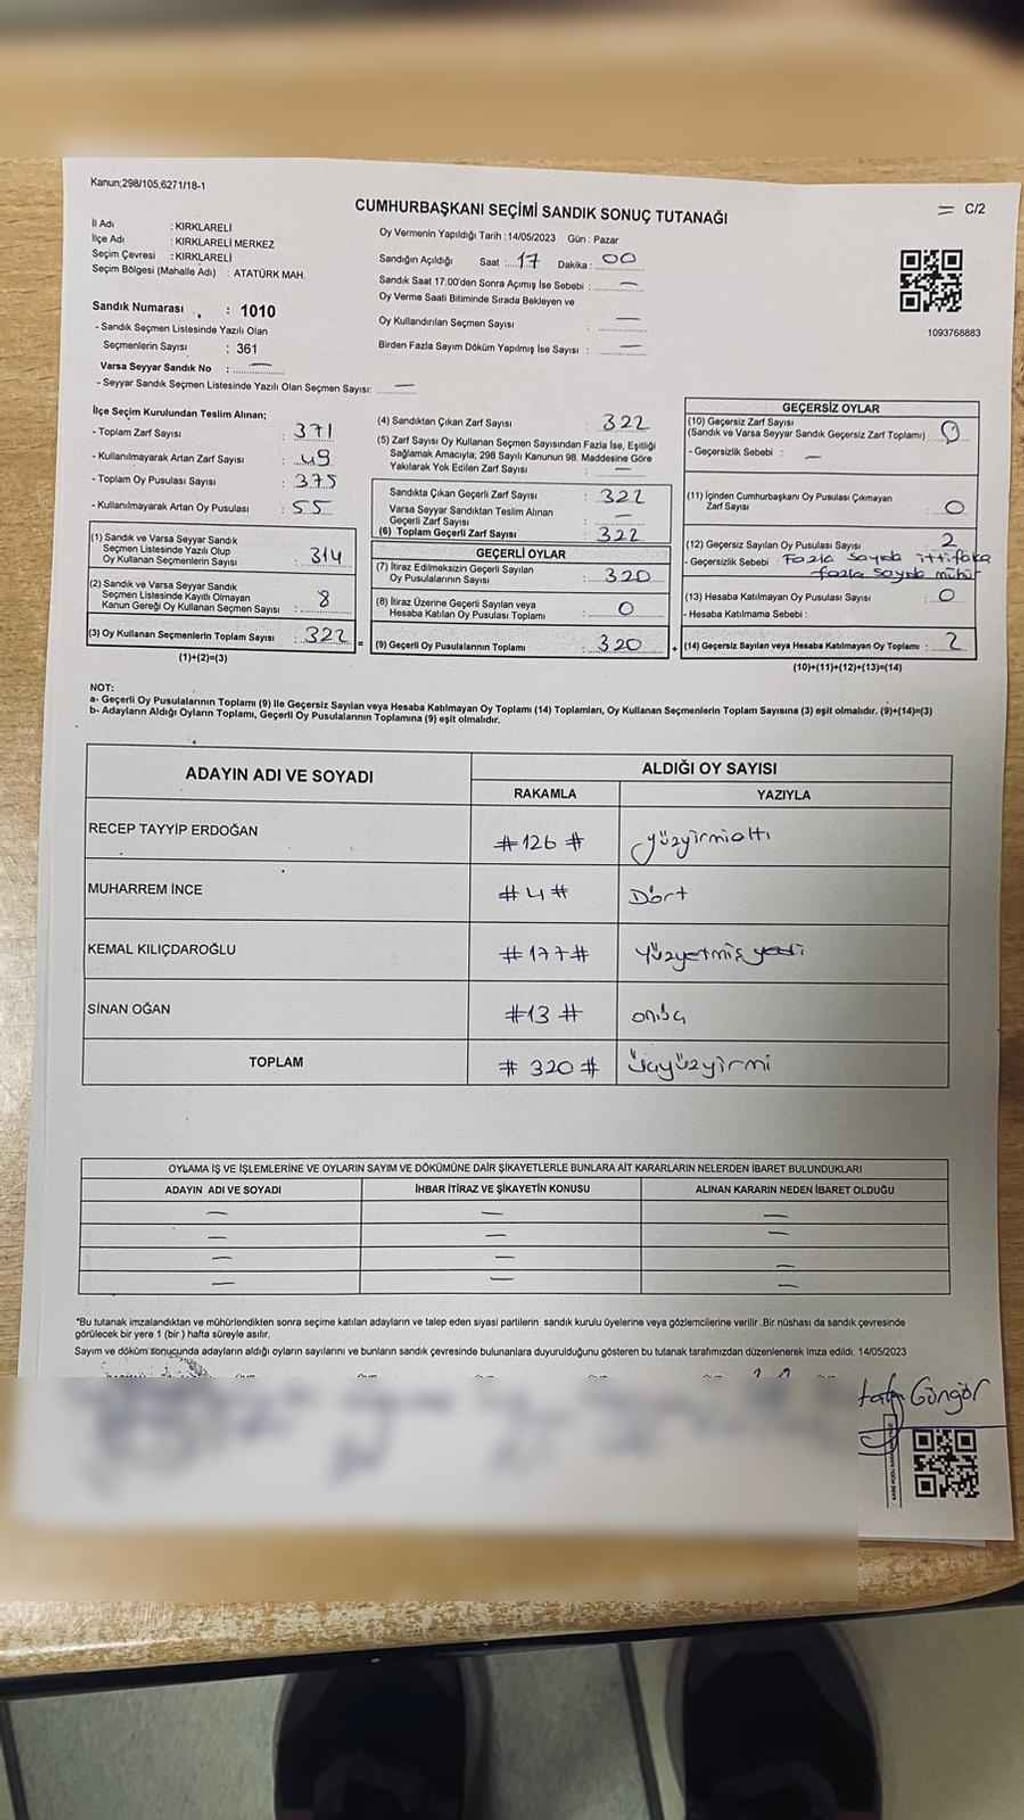 Kanun;298/105.6271/18-1
CUMHURBAŞKANI SEÇİMİ SANDIK SONUÇ TUTANAĞI
= C/2
İl Adı : KIRKLARELİ
İlçe Adı : KIRKLARELİ MERKEZ
Seçim Çevresi : KIRKLARELİ
Seçim Bölgesi (Mahalle Adı) : ATATÜRK MAH.
Oy Vermenin Yapıldığı Tarih : 14/05/2023 Gün : Pazar
Sandığın Açıldığı Saat : 17 Dakika : 00
Sandık Saat 17:00'den Sonra Açımış İse Sebebi : —
Oy Verme Saati Bitiminde Sırada Bekleyen ve
Oy Kullandırılan Seçmen Sayısı : —
Birden Fazla Sayım Döküm Yapılmış İse Sayısı : —
1093768883
Sandık Numarası : 1010
- Sandık Seçmen Listesinde Yazılı Olan
Seçmenlerin Sayısı : 361
Varsa Seyyar Sandık No : —
- Seyyar Sandık Seçmen Listesinde Yazılı Olan Seçmen Sayısı: —
İlçe Seçim Kurulundan Teslim Alınan;
- Toplam Zarf Sayısı : 371
- Kullanılmayarak Artan Zarf Sayısı : 49
- Toplam Oy Pusulası Sayısı : 375
- Kullanılmayarak Artan Oy Pusulası : 55
(1) Sandık ve Varsa Seyyar Sandık
Seçmen Listesinde Yazılı Olup
Oy Kullanan Seçmenlerin Sayısı : 314
(2) Sandık ve Varsa Seyyar Sandık
Seçmen Listesinde Kayıtlı Olmayan
Kanun Gereği Oy Kullanan Seçmen Sayısı : 8
(3) Oy Kullanan Seçmenlerin Toplam Sayısı : 322 =
(1)+(2)=(3)
(4) Sandıktan Çıkan Zarf Sayısı : 322
(5) Zarf Sayısı Oy Kullanan Seçmen Sayısından Fazla İse, Eşitliği
Sağlamak Amacıyla; 298 Sayılı Kanunun 98. Maddesine Göre
Yakılarak Yok Edilen Zarf Sayısı : —
Sandıkta Çıkan Geçerli Zarf Sayısı : 322
Varsa Seyyar Sandıktan Teslim Alınan
Geçerli Zarf Sayısı : —
(6) Toplam Geçerli Zarf Sayısı : 322
GEÇERLİ OYLAR
(7) İtiraz Edilmeksizin Geçerli Sayılan
Oy Pusulalarının Sayısı : 320
(8) İtiraz Üzerine Geçerli Sayılan veya
Hesaba Katılan Oy Pusulası Toplamı : 0
(9) Geçerli Oy Pusulalarının Toplamı : 320 +
GEÇERSİZ OYLAR
(10) Geçersiz Zarf Sayısı
(Sandık ve Varsa Seyyar Sandık Geçersiz Zarf Toplamı) : 0
- Geçersizlik Sebebi : —
(11) İçinden Cumhurbaşkanı Oy Pusulası Çıkmayan
Zarf Sayısı : 0
(12) Geçersiz Sayılan Oy Pusulası Sayısı : 2
- Geçersizlik Sebebi Fazla sayıda ittifaka
fazla sayıda mühür
(13) Hesaba Katılmayan Oy Pusulası Sayısı : 0
- Hesaba Katılmama Sebebi :
(14) Geçersiz Sayılan veya Hesaba Katılmayan Oy Toplamı : 2
(10)+(11)+(12)+(13)=(14)
NOT:
a- Geçerli Oy Pusulalarının Toplamı (9) ile Geçersiz Sayılan veya Hesaba Katılmayan Oy Toplamı (14) Toplamları, Oy Kullanan Seçmenlerin Toplam Sayısına (3) eşit olmalıdır. (9)+(14)=(3)
b- Adayların Aldığı Oyların Toplamı, Geçerli Oy Pusulalarının Toplamına (9) eşit olmalıdır.
ADAYIN ADI VE SOYADI
ALDIĞI OY SAYISI
RAKAMLA YAZIYLA
RECEP TAYYİP ERDOĞAN #126# yüzyirmialtı
MUHARREM İNCE #4# Dört
KEMAL KILIÇDAROĞLU #177# Yüzyetmiş yedi
SİNAN OĞAN #13# onüç
TOPLAM #320# Üçyüzyirmi
OYLAMA İŞ VE İŞLEMLERİNE VE OYLARIN SAYIM VE DÖKÜMÜNE DAİR ŞİKAYETLERLE BUNLARA AİT KARARLARIN NELERDEN İBARET BULUNDUKLARI
ADAYIN ADI VE SOYADI İHBAR İTİRAZ VE ŞİKAYETİN KONUSU ALINAN KARARIN NEDEN İBARET OLDUĞU
— — —
— — —
— — —
— — —
"Bu tutanak imzalandıktan ve mühürlendikten sonra seçime katılan adayların ve talep eden siyasi partilerin sandık kurulu üyelerine veya gözlemcilerine verilir .Bir nüshası da sandık çevresinde
görülecek bir yere 1 (bir ) hafta süreyle asılır.
Sayım ve döküm sonucunda adayların aldığı oyların sayılarını ve bunların sandık çevresinde bulunanlara duyurulduğunu gösteren bu tutanak tarafımızdan düzenlenerek imza edildi. 14/05/2023
Güngör